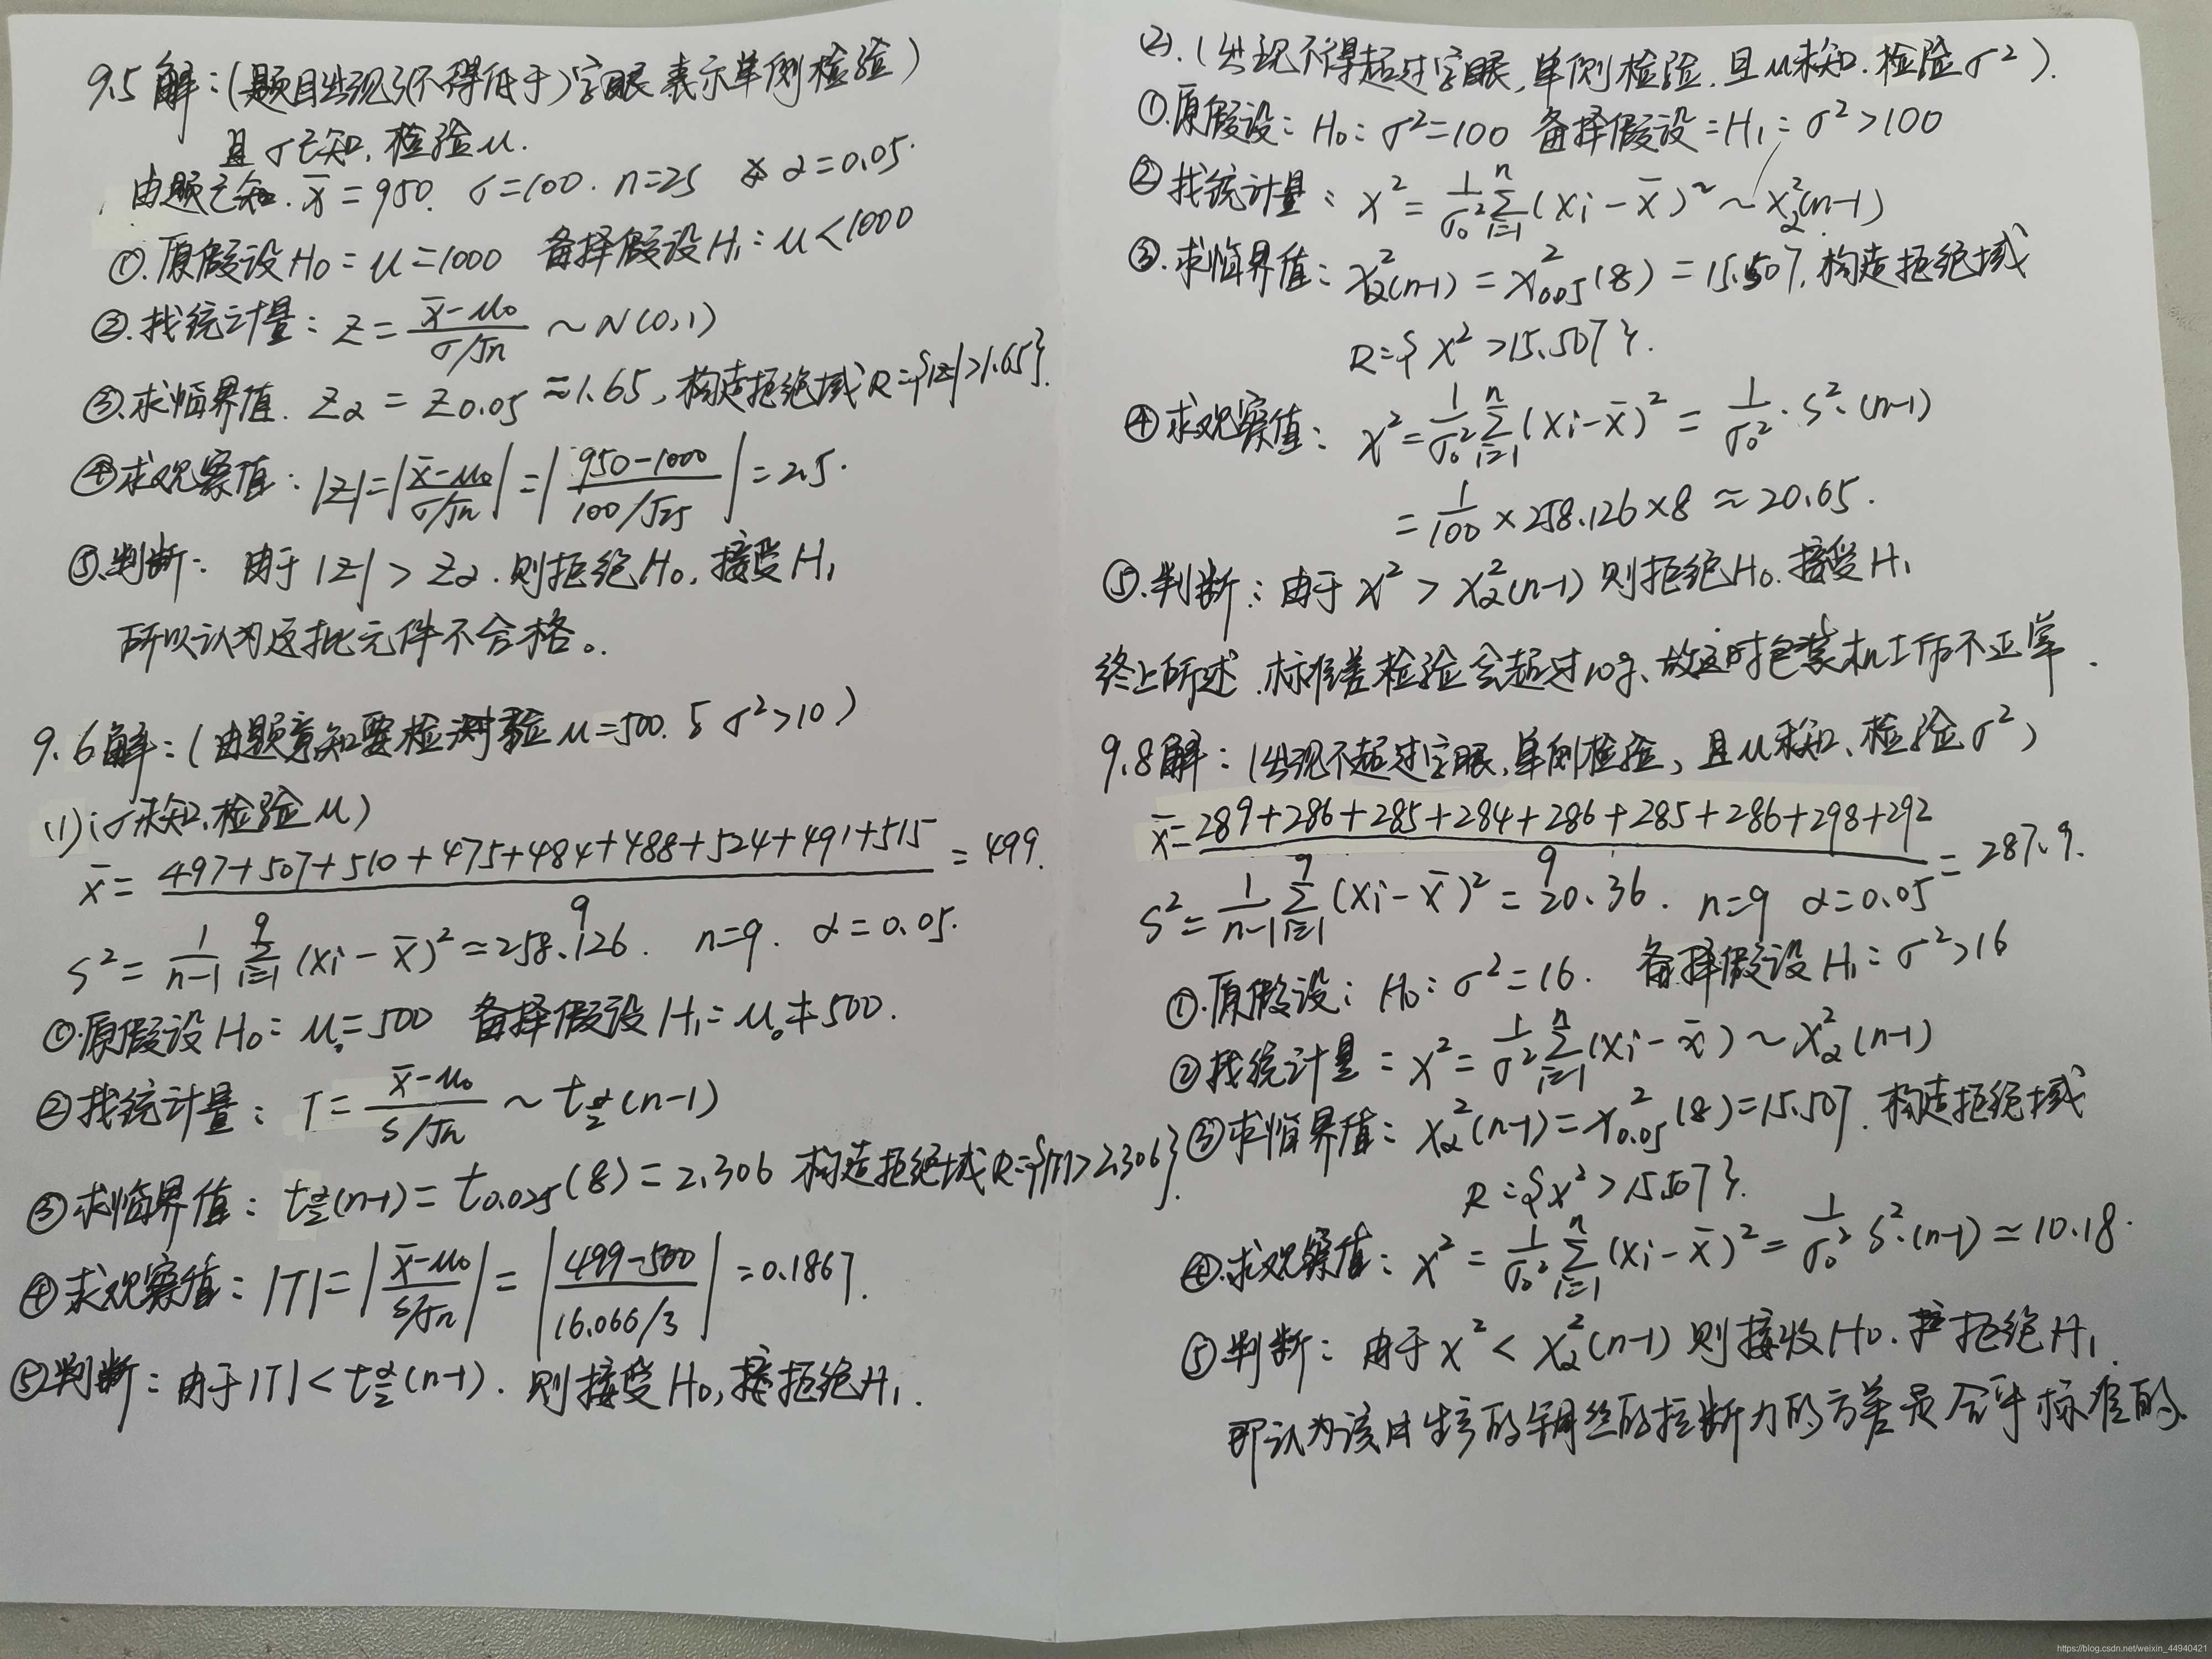 9.5 解:(题目出现了(不得低于)字眼 表示单侧检验)
且 σ已知, 检验μ.
由题已知. x̄ = 950. σ=100. n=25 α=0.05.
①.原假设H₀: μ=1000 备择假设H₁: μ<1000
②.找统计量: Z = (x̄-μ₀)/(σ/√n) ~ N(0,1)
③.求临界值. Zα = Z0.05 ≈1.65, 构造拒绝域 R={|Z|>1.65}.
④求观察值: |Z|=|(x̄-μ₀)/(σ/√n)| = |(950-1000)/(100/√25)| = 2.5.
⑤.判断: 由于 |Z| > Zα. 则拒绝H₀, 接受H₁
所以认为这批元件不合格。
9.6解:(由题意知要检验 μ=500. 5 σ²>10)
(1)(σ未知, 检验μ)
x̄ = (497+507+510+475+484+488+524+491+515)/9 = 499.
S² = 1/(n-1) Σᵢ₌₁⁹ (xi-x̄)² ≈258.126. n=9. α=0.05.
①.原假设H₀: μ₀=500 备择假设H₁: μ₀≠500.
②找统计量: T = (x̄-μ₀)/(S/√n) ~ tα/2(n-1)
③求临界值: tα/2(n-1) = t0.025(8) = 2.306 构造拒绝域R={|T|>2.306}.
④求观察值: |T|=|(x̄-μ₀)/(S/√n)| = |(499-500)/(16.066/3)| =0.1867.
⑤判断: 由于|T| < tα/2(n-1). 则接受H₀, 拒绝H₁.
(2).(出现不得超过字眼, 单侧检验, 且μ未知. 检验σ²).
①.原假设: H₀: σ²=100 备择假设: H₁: σ²>100
②找统计量: χ² = 1/σ₀² Σᵢ₌₁ⁿ (xi-x̄)² ~ χ²α(n-1)
③.求临界值: χ²α(n-1) = χ²0.05(8) = 15.507. 构造拒绝域
R={χ²>15.507}.
④求观察值: χ²= 1/σ₀² Σᵢ₌₁ⁿ (xi-x̄)² = 1/σ₀² · S²·(n-1)
= 1/100 ×258.126×8 ≈20.65.
⑤.判断: 由于 χ² > χ²α(n-1) 则拒绝H₀. 接受H₁
终上所述. 标准差检验会超过10g、故这时包装机工作不正常.
9.8解: (出现不超过字眼, 单侧检验, 且μ未知、检验σ²)
x̄ = (289+286+285+284+286+285+286+298+292)/9 = 287.9.
S² = 1/(n-1) Σᵢ₌₁⁹ (xi-x̄)² = 20.36. n=9 α=0.05
①.原假设: H₀: σ²=16. 备择假设H₁: σ²>16
②找统计量: χ² = 1/σ² Σᵢ₌₁ⁿ (xi-x̄) ~ χ²α(n-1)
③求临界值: χ²α(n-1) = χ²0.05(8) = 15.507. 构造拒绝域
R={χ²>15.507}.
④.求观察值: χ² = 1/σ₀² Σᵢ₌₁ⁿ (xi-x̄)² = 1/σ₀² S²·(n-1) ≈10.18.
⑤判断: 由于χ² < χ²α(n-1) 则接收H₀. 拒绝H₁.
即认为该日生产的钢丝的拉断力的方差是合乎标准的.
https://blog.csdn.net/weixin_44940421